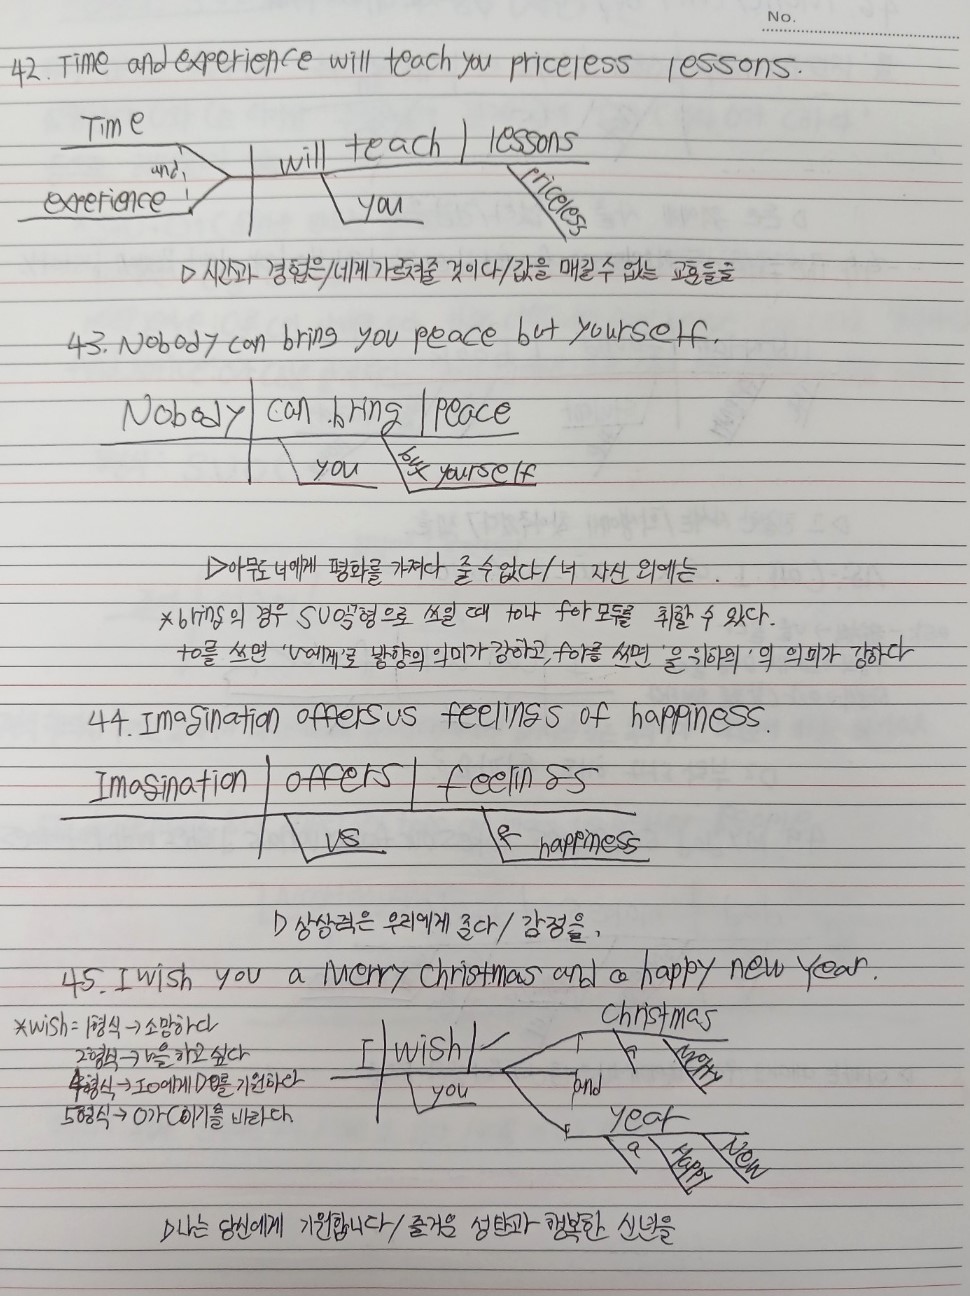 No.
42. Time and experience will teach you priceless lessons.
Time
and
experience
will teach lessons
you
priceless
▷ 시간과 경험은/네게 가르쳐줄 것이다/값을 매길 수 없는 교훈들을
43. Nobody can bring you peace but yourself.
Nobody can bring peace
you
but yourself
▷아무도 너에게 평화를 가져다 줄 수 없다/ 너 자신 외에는.
*bring의 경우 SVO형으로 쓰일 때 to나 for 모두를 취할 수 있다.
to를 쓰면 '~에게'로 방향의 의미가 강하고, for를 쓰면 '을 위하의'의 의미가 강하다
44. Imagination offers us feelings of happiness.
Imagination offers feelings
us
of happiness
▷ 상상력은 우리에게 준다/ 감정을.
45. I wish you a Merry Christmas and a happy new year.
*wish= 1형식→소망하다
2형식→ 을 하고 싶다
4형식→IO에게 DO를 기원하다
5형식→ O가 C이기를 바라다.
I wish
you
Christmas
a
Merry
and
year
a
Happy
New
▷나는 당신에게 기원합니다/ 즐거운 성탄과 행복한 신년을